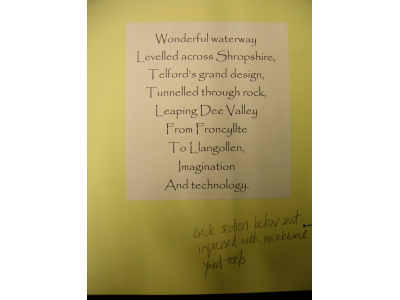 Wonderful waterway
Levelled across Shropshire,
Telford's grand design,
Tunnelled through rock,
Leaping Dee Valley
From Froncyllte
To Llangollen,
Imagination
And technology.
brick section below seat
impressed with maintenance
yard tools